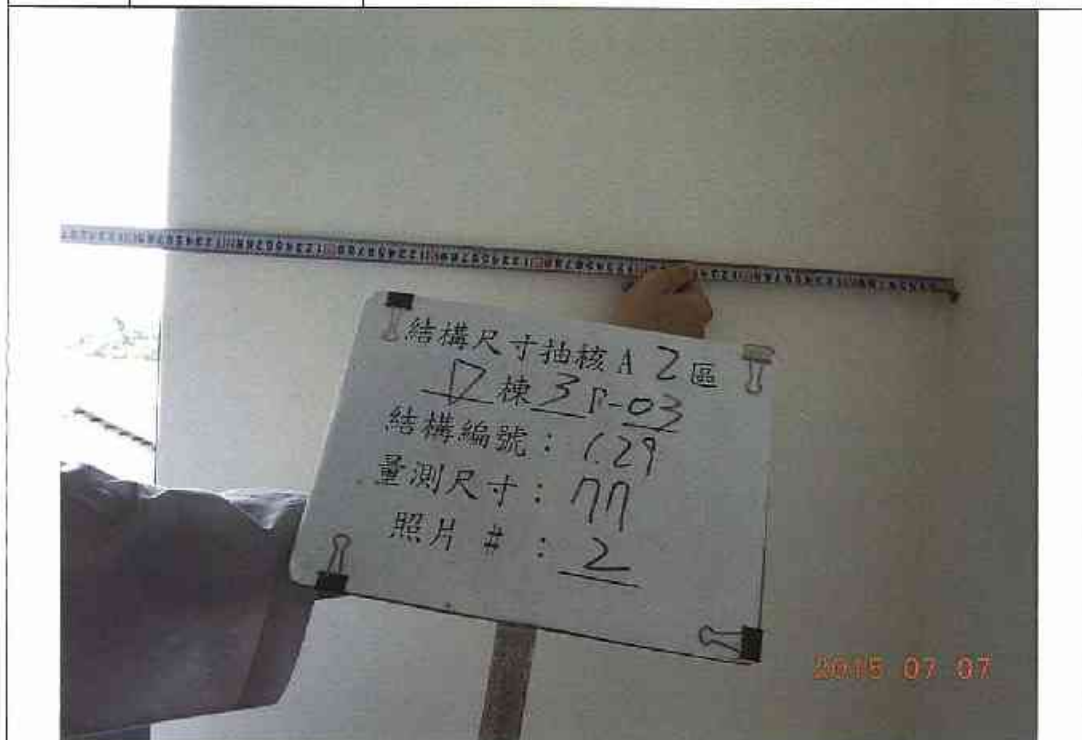 結構尺寸抽核 A 2 區
D 棟 3F-03
結構編號：C29
量測尺寸：77
照片 #：2
2015 07 07